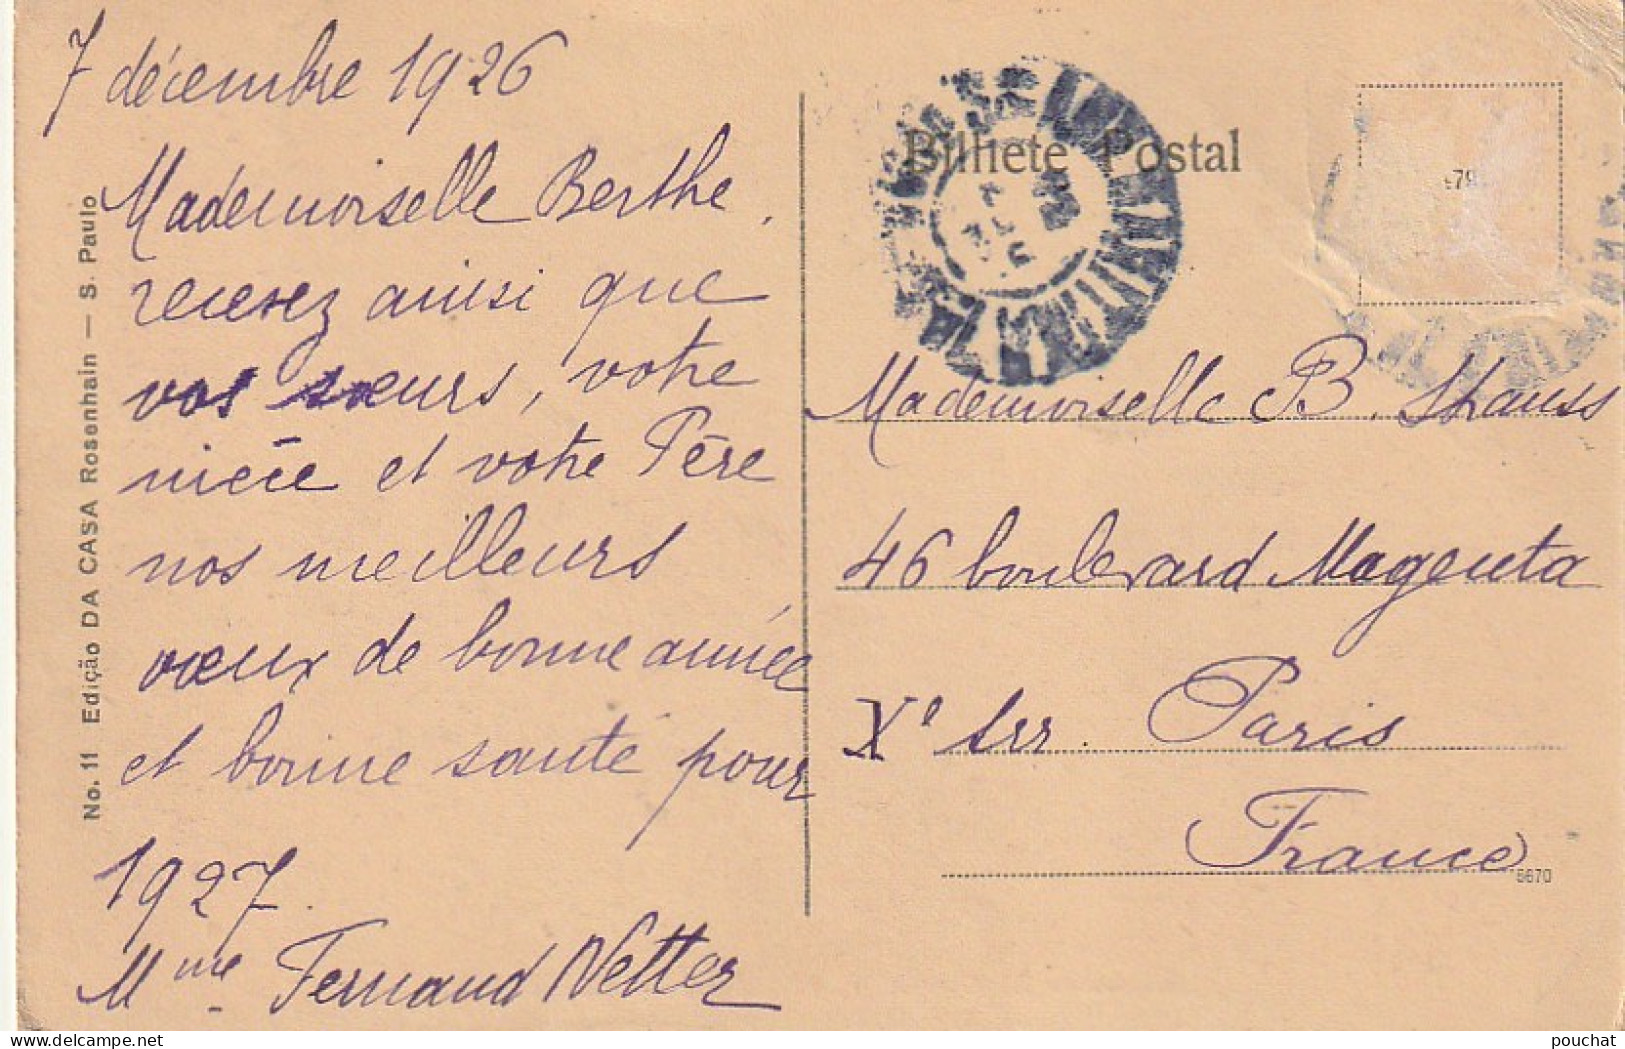 7 décembre 1926
Mademoiselle Berthe,
recevez ainsi que
vos sœurs, votre
nièce et votre Père
nos meilleurs
vœux de bonne année
et bonne santé pour
1927.
Mme Fernand Netter
No. 11 Edição DA CASA Rosenhain — S. Paulo
Bilhete Postal
Mademoiselle B. Strauss
46 boulevard Magenta
Xe arr. Paris
France
6670
pouchat